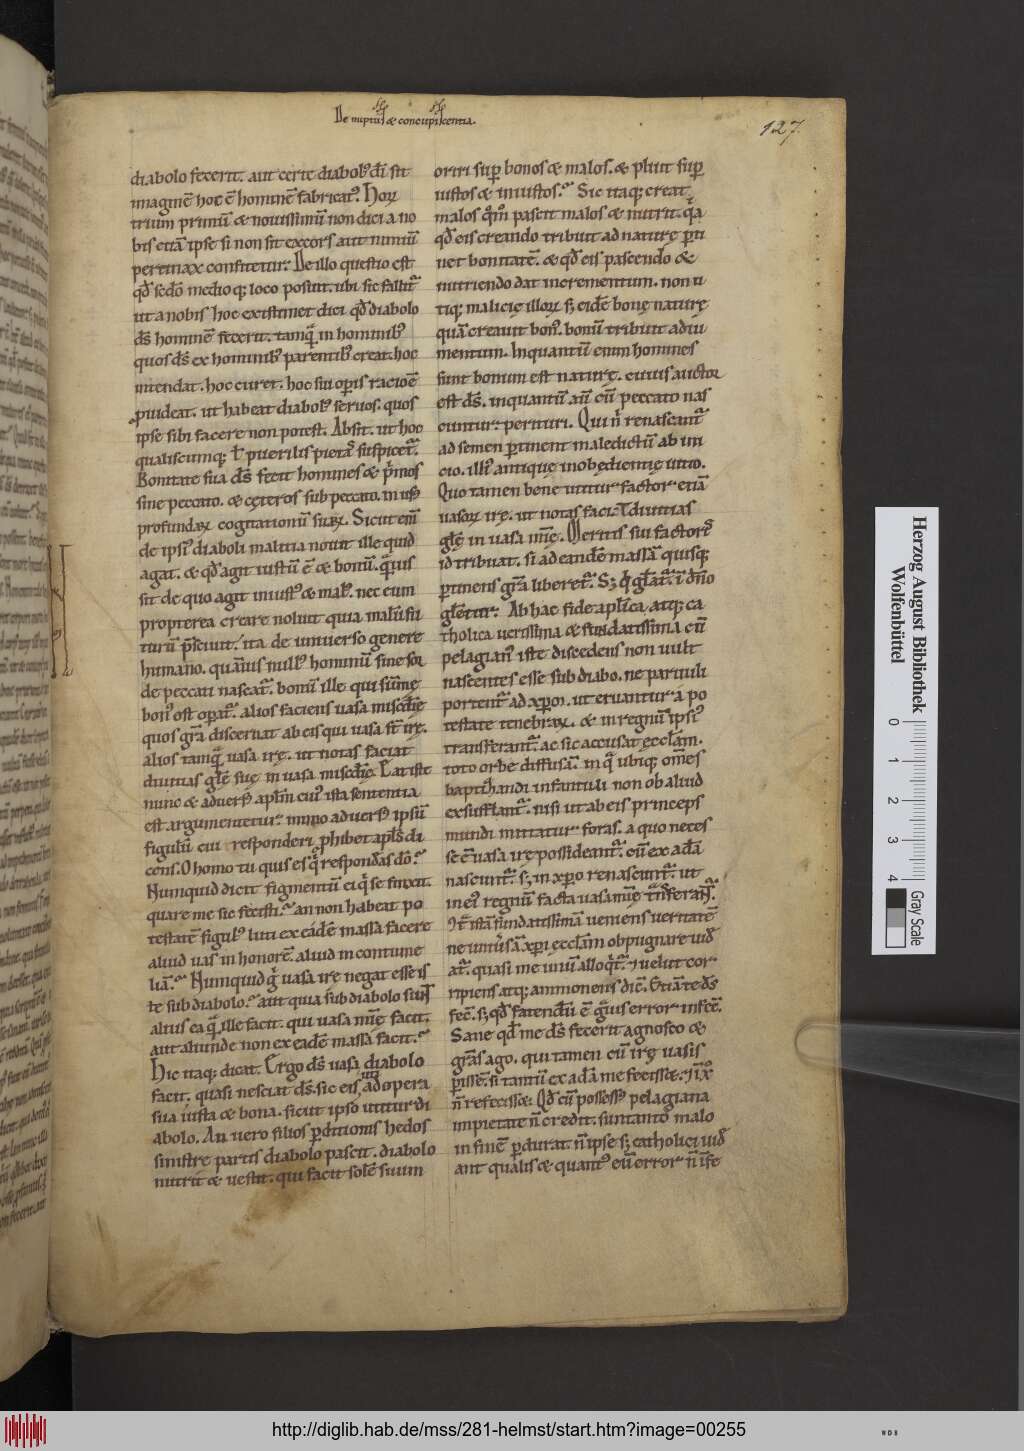 De nuptiis & concupiscentia.
127.
diabolo fecerit. aut certe diabolꝰ dī sit
imaginē hoc ē hominē fabricat᷑. Hoꝝ
trium primū & nouissimū non dici a no
bis etiā ipse si non sit excors aut nimiū
pertinax confitetur. De illo questio est
qđ sedo medioq; loco posuit. ubi sic fallit᷑
ut a nobis hoc existimet dici qđ diabolo
ds̄ hominē fecerit. tamq̄ in hominibꝰ
quos ds̄ ex hominibꝰ parentibꝰ creat. hoc
intendat. hoc curet. hoc sui oꝑis racioē
ꝓuideat. ut habeat diabolꝰ seruos. quos
ipse sibi facere non potest. Absit. ut hoc
qualiscumq; ł puerilis pietas suspicet᷑.
Bonitate sua ds̄ fecit homines & pͥmos
sine peccato. & cęteros sub peccato. in usꝰ
profundaꝝ cogitationū suaꝝ. Sicut enī
de ipsiꝰ diaboli malitia nouit ille quid
agat. & qđ agit iustū ē & bonū. quis
sit de quo agit iniustꝰ & malꝰ. nec eum
propterea creare noluit quia malū fu
turū p̄sciuit. ita de uniuerso genere
humano. quāuis nullꝰ hominū sine sor
de peccati nascat᷑. bonū ille qui sūmę
bonꝰ est oꝑat᷑. alios faciens uasa miscđię
quos gr̄a discernat ab eis qui uasa st̄ irę.
alios tamq̄ uasa irę. ut notas faciat
diuitias głę suę in uasa miscđię. Eat iste
nunc & aduersꝰ apłm cuiꝰ ista sententia
est argumentetur. immo aduersꝰ ipsū
figulū cui responderi ꝓhibet apłs di
cens. O homo tu quis es q̇ respondeas dō.
Nunquid dicit figmentū ei q̇ se finxit.
quare me sic fecisti. an non habeat po
testatē figulꝰ luti ex eadē massa facere
aliud uas in honorē. aliud in contume
liā. Nunquid g̊ uasa irę negat esse is
te sub diabolo. aut quia sub diabolo sunt
alius ea q̄ ille facit. qui uasa mię facit.
aut aliunde non ex eadē massa facit.
Hic itaq; dicat. Ergo ds̄ uasa diabolo
facit. quasi nesciat ds̄. sic eis uti ad opera
sua iusta & bona. sicut ipso utitur di
abolo. An uero filios ꝑditionis hedos
sinistre partis diabolo pascit. diabolo
nutrit & uestit. qui facit solē suum
oriri suꝑ bonos & malos. & pluit suꝑ
iustos & iniustos. Sic itaq; creat
malos qm̄ pascit malos & nutrit. qa
qđ eis creando tribuit ad naturę ꝑti
net bonitatē. & qđ eis pascendo &
nutriendo dat incrementum. non u
tiq; malicię illoꝝ s; eidē bonę naturę
quā creauit bonꝰ. bonū tribuit adiu
mentum. Inquantū enim homines
sunt bonum est naturę. cuius auctor
est ds̄. inquantū aū cū peccato nas
cuntur. perituri. Qui n̄ renascant᷑
ad semen ꝑtinent maledictū ab ini
cio. illiꝰ antique inobędientię uitio.
Quo tamen bene utitur factor etiā
uasoꝝ irę. ut notas faciat diuitias
glę in uasa mię. Meritis sui factoris
id tribuat. si ad eandē massā quisq;
ꝑtinens gr̄a liberet᷑. S; q̇ glat᷑. ī dn̄o
glētur. Ab hac fide aplīca atq; ca
tholica uerissima & fundatissima cū
pelagianꝰ iste discedens non uult
nascentes esse sub diabo. ne paruuli
portent᷑ ad xp̄om. ut eruantur a po
testate tenebraꝝ. & in regnū ipsiꝰ
transferant᷑. ac sic accusat ęcclam.
toto orbe diffusā. in q̄ ubiq; om̄es
baptizandi infantuli non ob aliud
exsufflant᷑. nisi ut ab eis princeps
mundi mittatur foras. a quo neces
se ē uasa irę possideant᷑. cū ex adā
nascunt᷑. s; in xp̄o renascunt᷑. ut
in eiꝰ regnū facta uasa mię transferant᷑.
Ꝯt̄ istā fundatissimā ueniens ueritatē
ne uniūsā xp̄i ęcclam obpugnare uiđ
at᷑. quasi me unū alloqt᷑. & uelut cor
ripiens atq; ammonens dic̄. Etiā te ds̄
fec̄. s; qđ fatendū ē gͣuis error infec̄.
Sane qđ me ds̄ fecerit agnosco &
grās ago. qui tamen cū irę uasis
ꝑissē. si tantū ex adā me fecisse. & ī xp̄o
n̄ refecisse. Qđ cū possessꝰ pelagiana
impietate n̄ credit. si in tanto malo
in finē ꝑdurat. n̄ ipse s; catholici uiđ
ant qualis & quantꝰ eū error n̄ ī fe
Herzog August Bibliothek
Wolfenbüttel
0 1 2 3 4
Gray Scale
http://diglib.hab.de/mss/281-helmst/start.htm?image=00255